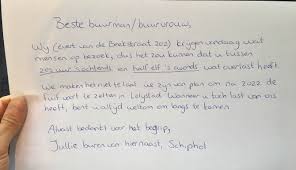 Beste buurman/buurvrouw,
Wij (Evert van de Beekstraat 202) krijgen vandaag wat
mensen op bezoek, dus het zou kunnen dat u tussen
zes uur 's ochtends en half elf 's avonds wat overlast heeft.
We maken het niet te laat we zijn van plan om na 2022 de
boel wat te zetten in Lelystad. Wanneer u toch last van ons
heeft, bent u altijd welkom om langs te komen.
Alvast bedankt voor het begrip,
Jullie buren van hiernaast, Schiphol